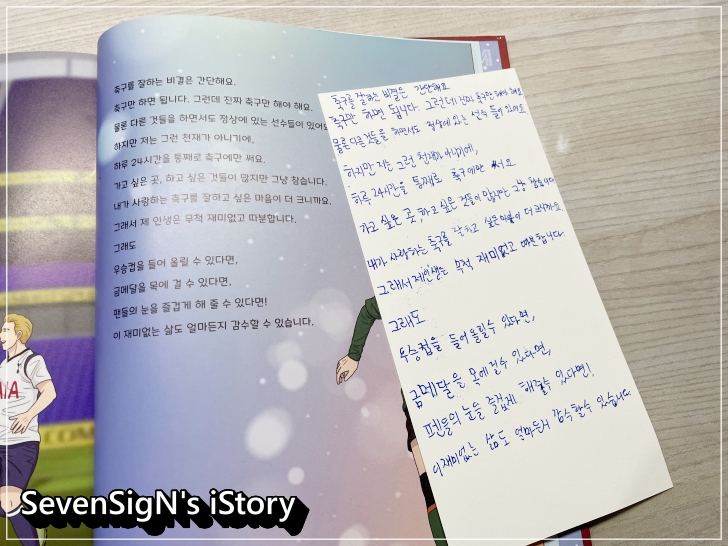 축구를 잘하는 비결은 간단해요.
축구만 하면 됩니다. 그런데 진짜 축구만 해야 해요.
물론 다른 것들을 하면서도 정상에 있는 선수들이 있어요
하지만 저는 그런 천재가 아니기에,
하루 24시간을 통째로 축구에만 써요.
가고 싶은 곳, 하고 싶은 것들이 많지만 그냥 참습니다.
내가 사랑하는 축구를 잘하고 싶은 마음이 더 크니까요.
그래서 제 인생은 무척 재미없고 따분합니다.
그래도
우승컵을 들어 올릴 수 있다면,
금메달을 목에 걸 수 있다면,
팬들의 눈을 즐겁게 해 줄 수 있다면!
이 재미없는 삶도 얼마든지 감수할 수 있습니다.
축구를 잘하는 비결은 간단해요
축구만 하면 됩니다. 그런데 진짜 축구만 해야 해요
물론 다른 것들을 하면서도 정상에 있는 선수들이 있어요
하지만 저는 그런 천재가 아니기에,
하루 24시간을 통째로 축구에만 써요
가고 싶은 곳, 하고 싶은 것들이 많지만 그냥 참습니다
내가 사랑하는 축구를 잘하고 싶은 마음이 더 크니까요.
그래서 제 인생은 무척 재미없고 따분합니다.
그래도
우승컵을 들어 올릴 수 있다면,
금메달을 목에 걸 수 있다면,
팬들의 눈을 즐겁게 해줄 수 있다면!
이 재미없는 삶도 얼마든지 감수할 수 있습니다.
AIA
COM
SevenSigN's iStory